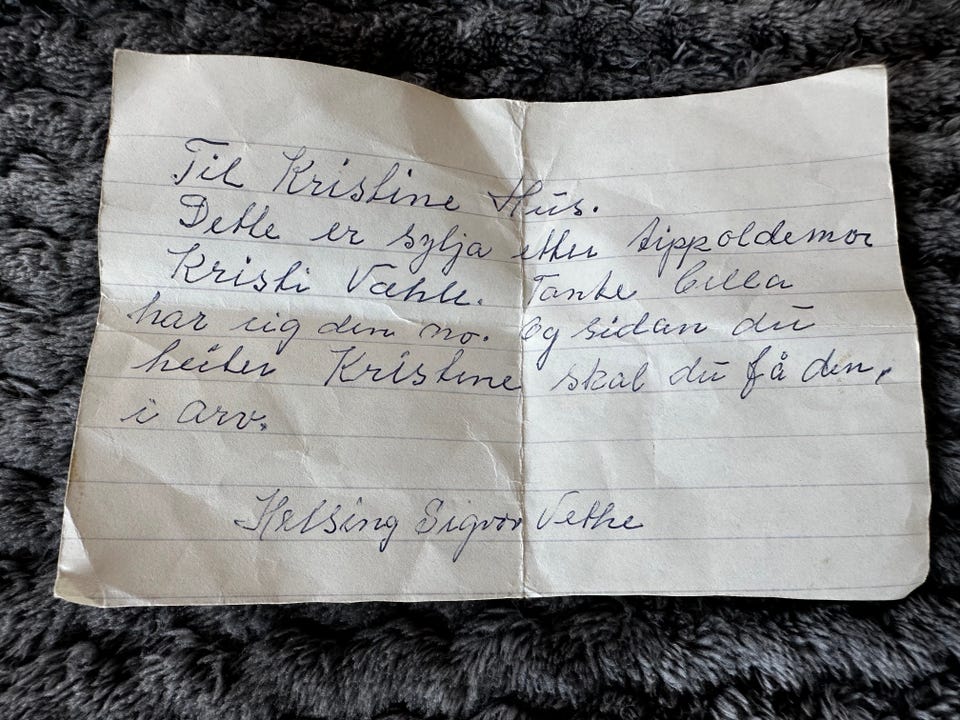 Til Kristine Hus.
Dette er sylja etter tippoldemor
Kristi Væhle. Tante Cilla
har eig den no. Og sidan du
heiter Kristine skal du få den,
i arv.
Helsing Sigvor Vethe